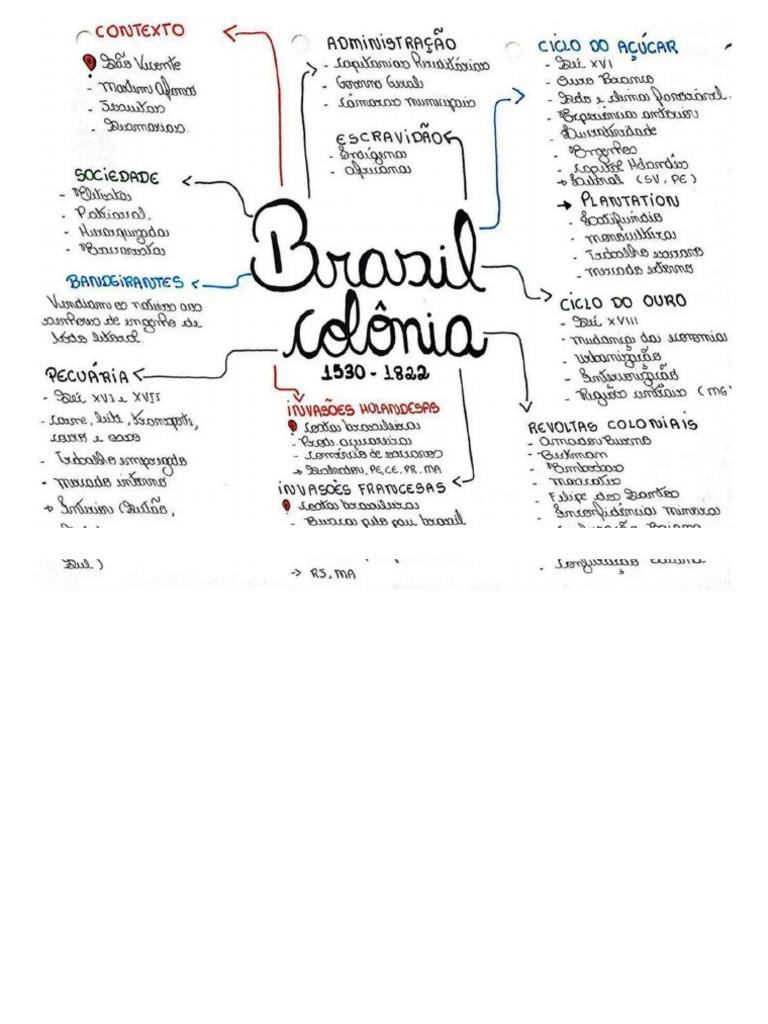 CONTEXTO
São Vicente
- Martim Afonso
- Jesuítas
- Sesmarias.
ADMINISTRAÇÃO
- Capitanias Hereditárias
- Governo Geral
- Câmaras municipais
ESCRAVIDÃO
- Indígena
- africana
CICLO DO AÇÚCAR
- Séc XVI
- Ouro Branco
- Solo e clima favorável.
- Experiência anterior
- Lucratividade
- Engenhos
- Capital Holandês
→ Litoral (SV, PE)
→ PLANTATION
- Latifúndio
- monocultura
- Trabalho escravo
- mercado externo
SOCIEDADE
- Elitista
- Patriarcal.
- Hierarquizada
- Escravista
BANDEIRANTES
Vendiam os nativos aos
senhores de engenho de
todo litoral.
Brasil
colônia
1530 - 1822
CICLO DO OURO
- Séc XVIII
- mudança das economias
- Urbanização
- Interiorização
- Região central (MG
PECUÁRIA
- Séc XVI e XVII
- carne, leite, transporte,
couro e ossos
- Trabalho empregado
• mercado interno
→ Interior (Sertão,
Sul)
INVASÕES HOLANDESAS
costas brasileiras
- Prod. açucareira
- Comércio de escravos
→ Salvador, PE, CE, PR, MA
INVASÕES FRANCESAS
costas brasileiras
- Busca pelo pau brasil
→ RJ, MA
REVOLTAS COLONIAIS
- Amador Bueno
- Beckmam
- Emboabas
- Mascates
- Felipe dos Santos
- Inconfidência mineira
- Conjuração Baiana